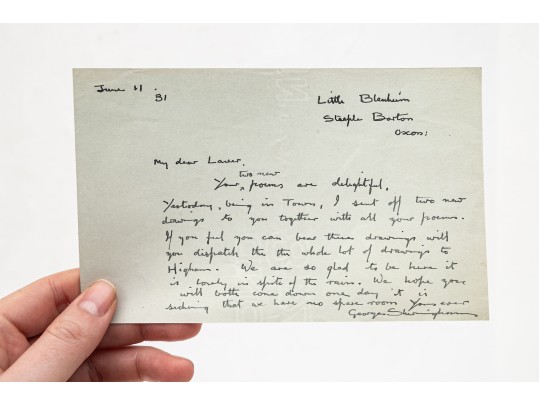 June 11.
31
Little Blenheim
Steeple Barton
Oxon:
My dear Laver,
two new
Your ^ poems are delightful.
Yestoday, being in Town, I sent off two new
drawings to you together with all your poems.
If you feel you can bear these drawings will
you dispatch the the whole lot of drawings to
Higham. We are so glad to be here it
is lovely in spite of the rain. We hope you
will both come down one day it is
sickening that we have no spare room Yours ever
George Sheringham